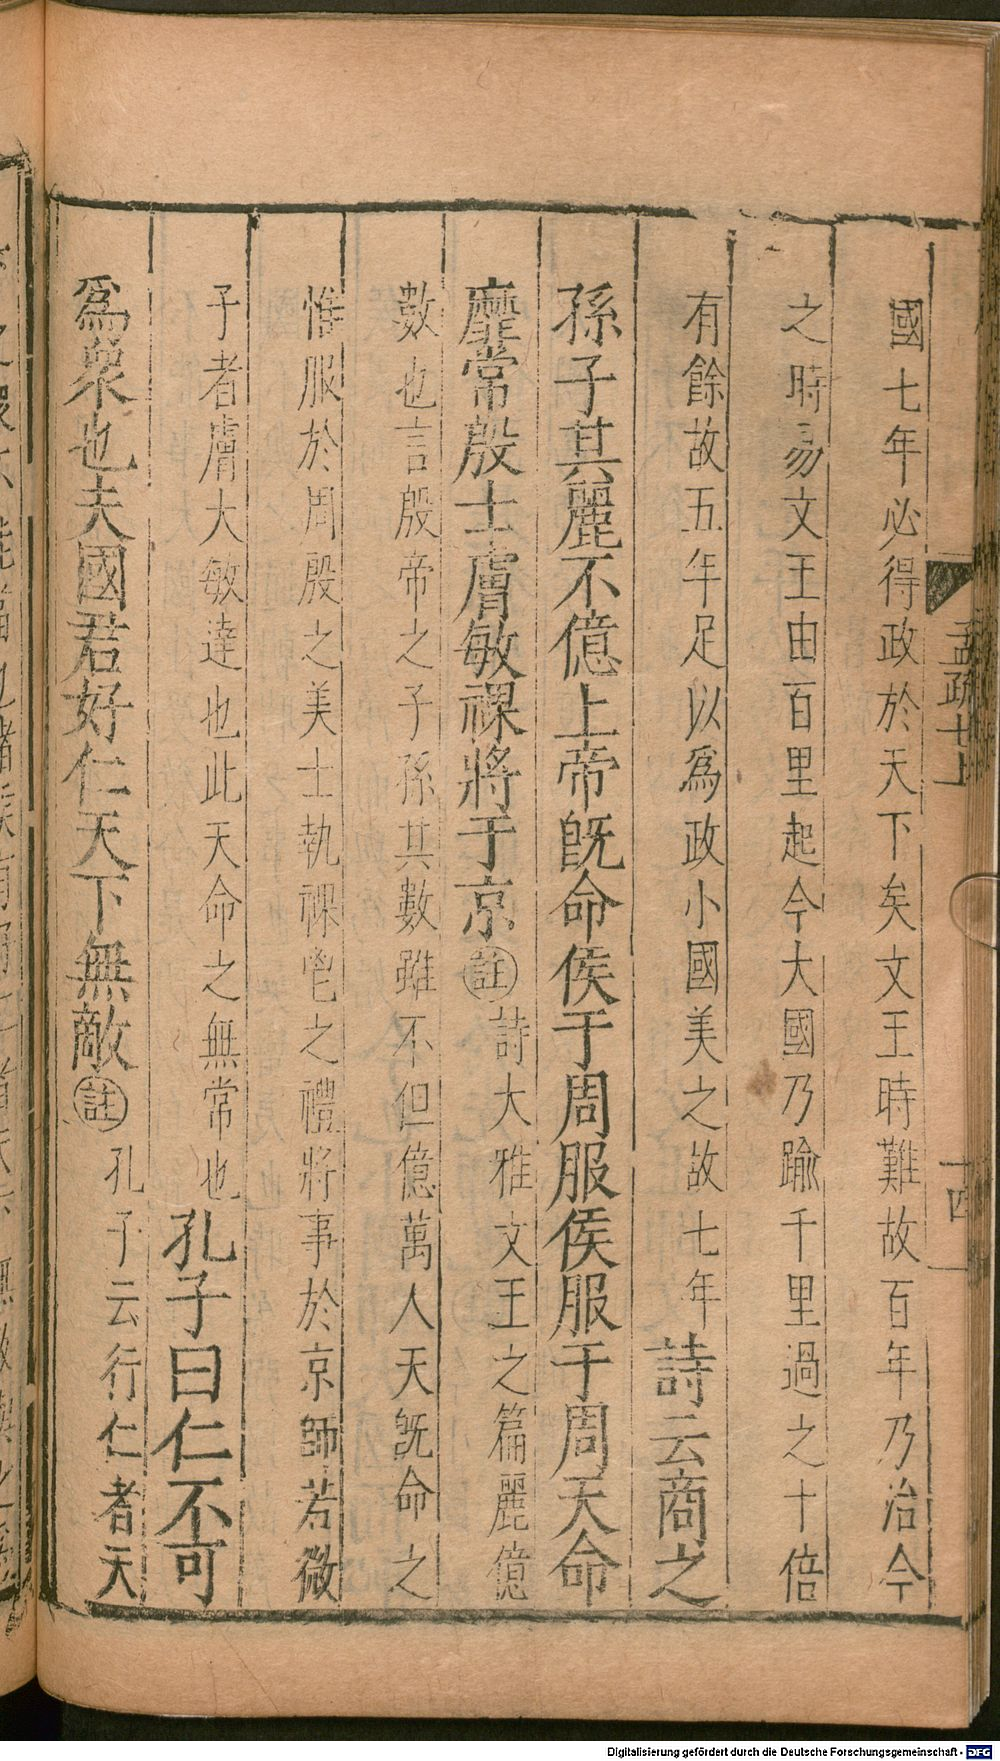 孟疏七上
十四
國七年必得政於天下矣文王時難故百年乃治今
之時易文王由百里起今大國乃踰千里過之十倍
有餘故五年足以爲政小國美之故七年詩云商之
孫子其麗不億上帝旣命侯于周服侯服于周天命
靡常殷士膚敏祼將于京註詩大雅文王之篇麗億
數也言殷帝之子孫其數雖不但億萬人天旣命之
惟服於周殷之美士執祼鬯之禮將事於京師若微
子者膚大敏達也此天命之無常也孔子曰仁不可
爲衆也夫國君好仁天下無敵註孔子云行仁者天
Digitalisierung gefördert durch die Deutsche Forschungsgemeinschaft - DFG